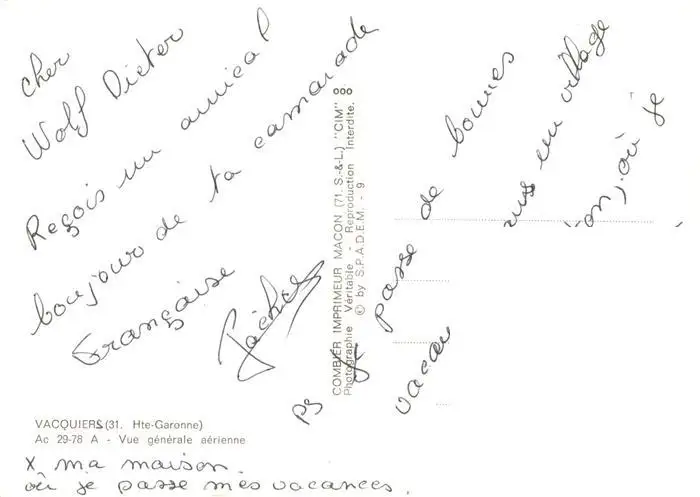 cher
Wolf Dieter
Reçois un amical
bonjour de ta camarade
Française
ooo
COMBIER IMPRIMEUR MACON (71. S.-&-L.) "CIM"
Photographie Véritable - Reproduction Interdite.
© by S.P.A.D.E.M. - 9
ps je passe de bonnes
vacan un village
où je
VACQUIERS (31. Hte-Garonne)
Ac 29-78 A - Vue générale aérienne
X ma maison.
où je passe mes vacances.